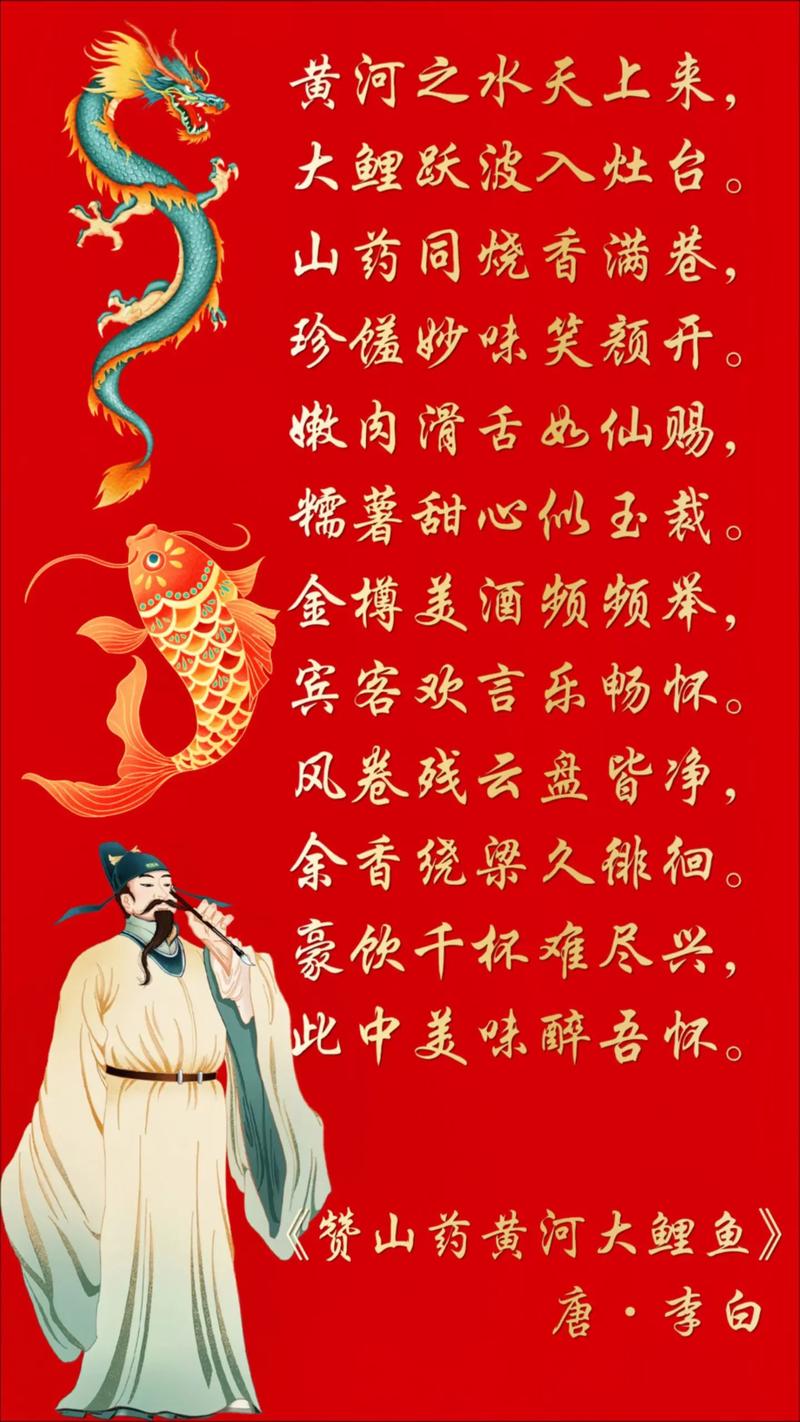 黄河之水天上来，
大鲤跃波入灶台。
山药同烧香满巷，
珍馐妙味笑颜开。
嫩肉滑舌如仙赐，
糯薯甜心似玉裁。
金樽美酒频频举，
宾客欢言乐畅怀。
风卷残云盘皆净，
余香绕梁久徘徊。
豪饮千杯难尽兴，
此中美味醉吾怀。
《赞山药黄河大鲤鱼》
唐·李白